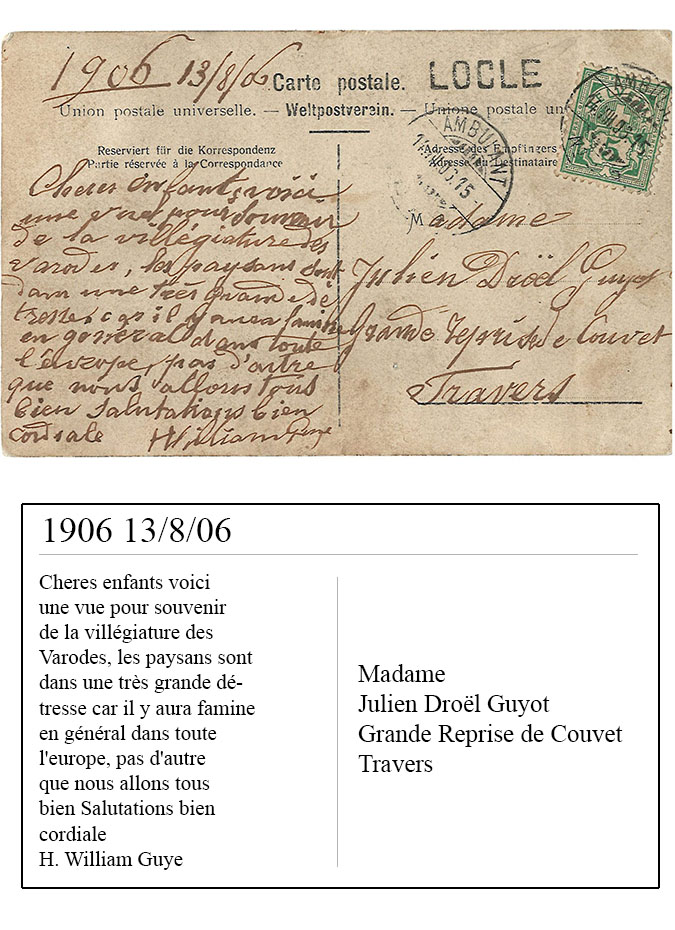 1906 13/8/06
Carte postale.
LOCLE
Union postale universelle. — Weltpostverein. — Unione postale un
Reserviert für die Korrespondenz
Partie réservée à la Correspondance
Adresse des Empfingers
Adresse du Destinataire
AMBULANT
AMBU
Cheres enfants voici
une vue pour souvenir
de la villégiature des
Varodes, les paysans sont
dans une très grande dé
tresse car il y aura famine
en général dans toute
l'europe, pas d'autre
que nous allons tous
bien Salutations bien
cordiale
H William Guye
Madame
Julien Droël Guyot
Grande Reprise de Couvet
Travers
1906 13/8/06
Cheres enfants voici
une vue pour souvenir
de la villégiature des
Varodes, les paysans sont
dans une très grande dé-
tresse car il y aura famine
en général dans toute
l'europe, pas d'autre
que nous allons tous
bien Salutations bien
cordiale
H. William Guye
Madame
Julien Droël Guyot
Grande Reprise de Couvet
Travers